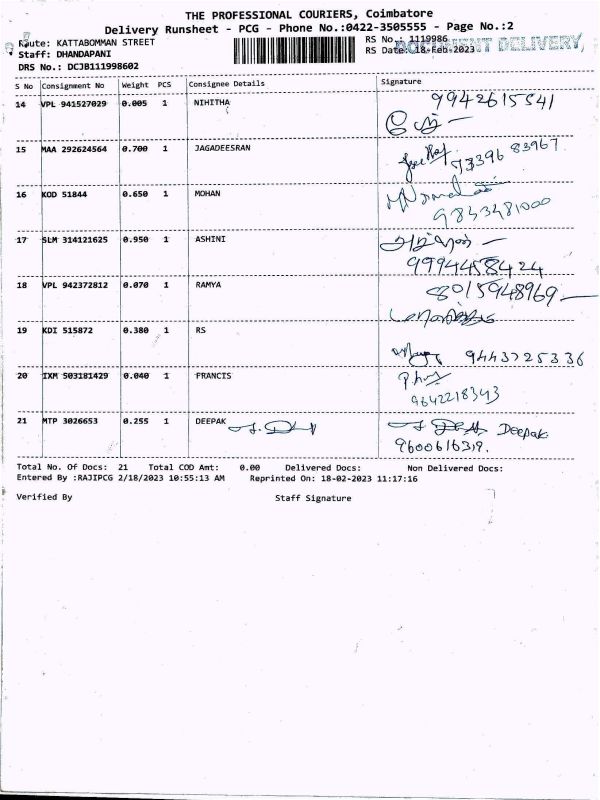 THE PROFESSIONAL COURIERS, Coimbatore
Delivery Runsheet - PCG - Phone No.:0422-3505555 - Page No.:2
Route: KATTABOMMAN STREET
RS No.: 1119986
Staff: DHANDAPANI
RS Date: 18-Feb-2023
DOCUMENT DELIVERY
DRS No.: DCJB111998602
S No Consignment No Weight PCS Consignee Details Signature
14 VPL 941527029 0.005 1 NIHITHA 9942615541
15 MAA 292624564 0.700 1 JAGADEESRAN 73396 83967
16 KOD 51844 0.650 1 MOHAN 9843481000
17 SLM 314121625 0.950 1 ASHINI
9994458424
18 VPL 942372812 0.070 1 RAMYA 8015948969
19 KDI 515872 0.380 1 RS
9443725336
20 IXM 503181429 0.040 1 FRANCIS
9642218343
21 MTP 3026653 0.255 1 DEEPAK Deepak
9600616319.
Total No. Of Docs: 21 Total COD Amt: 0.00 Delivered Docs: Non Delivered Docs:
Entered By :RAJIPCG 2/18/2023 10:55:13 AM Reprinted On: 18-02-2023 11:17:16
Verified By Staff Signature